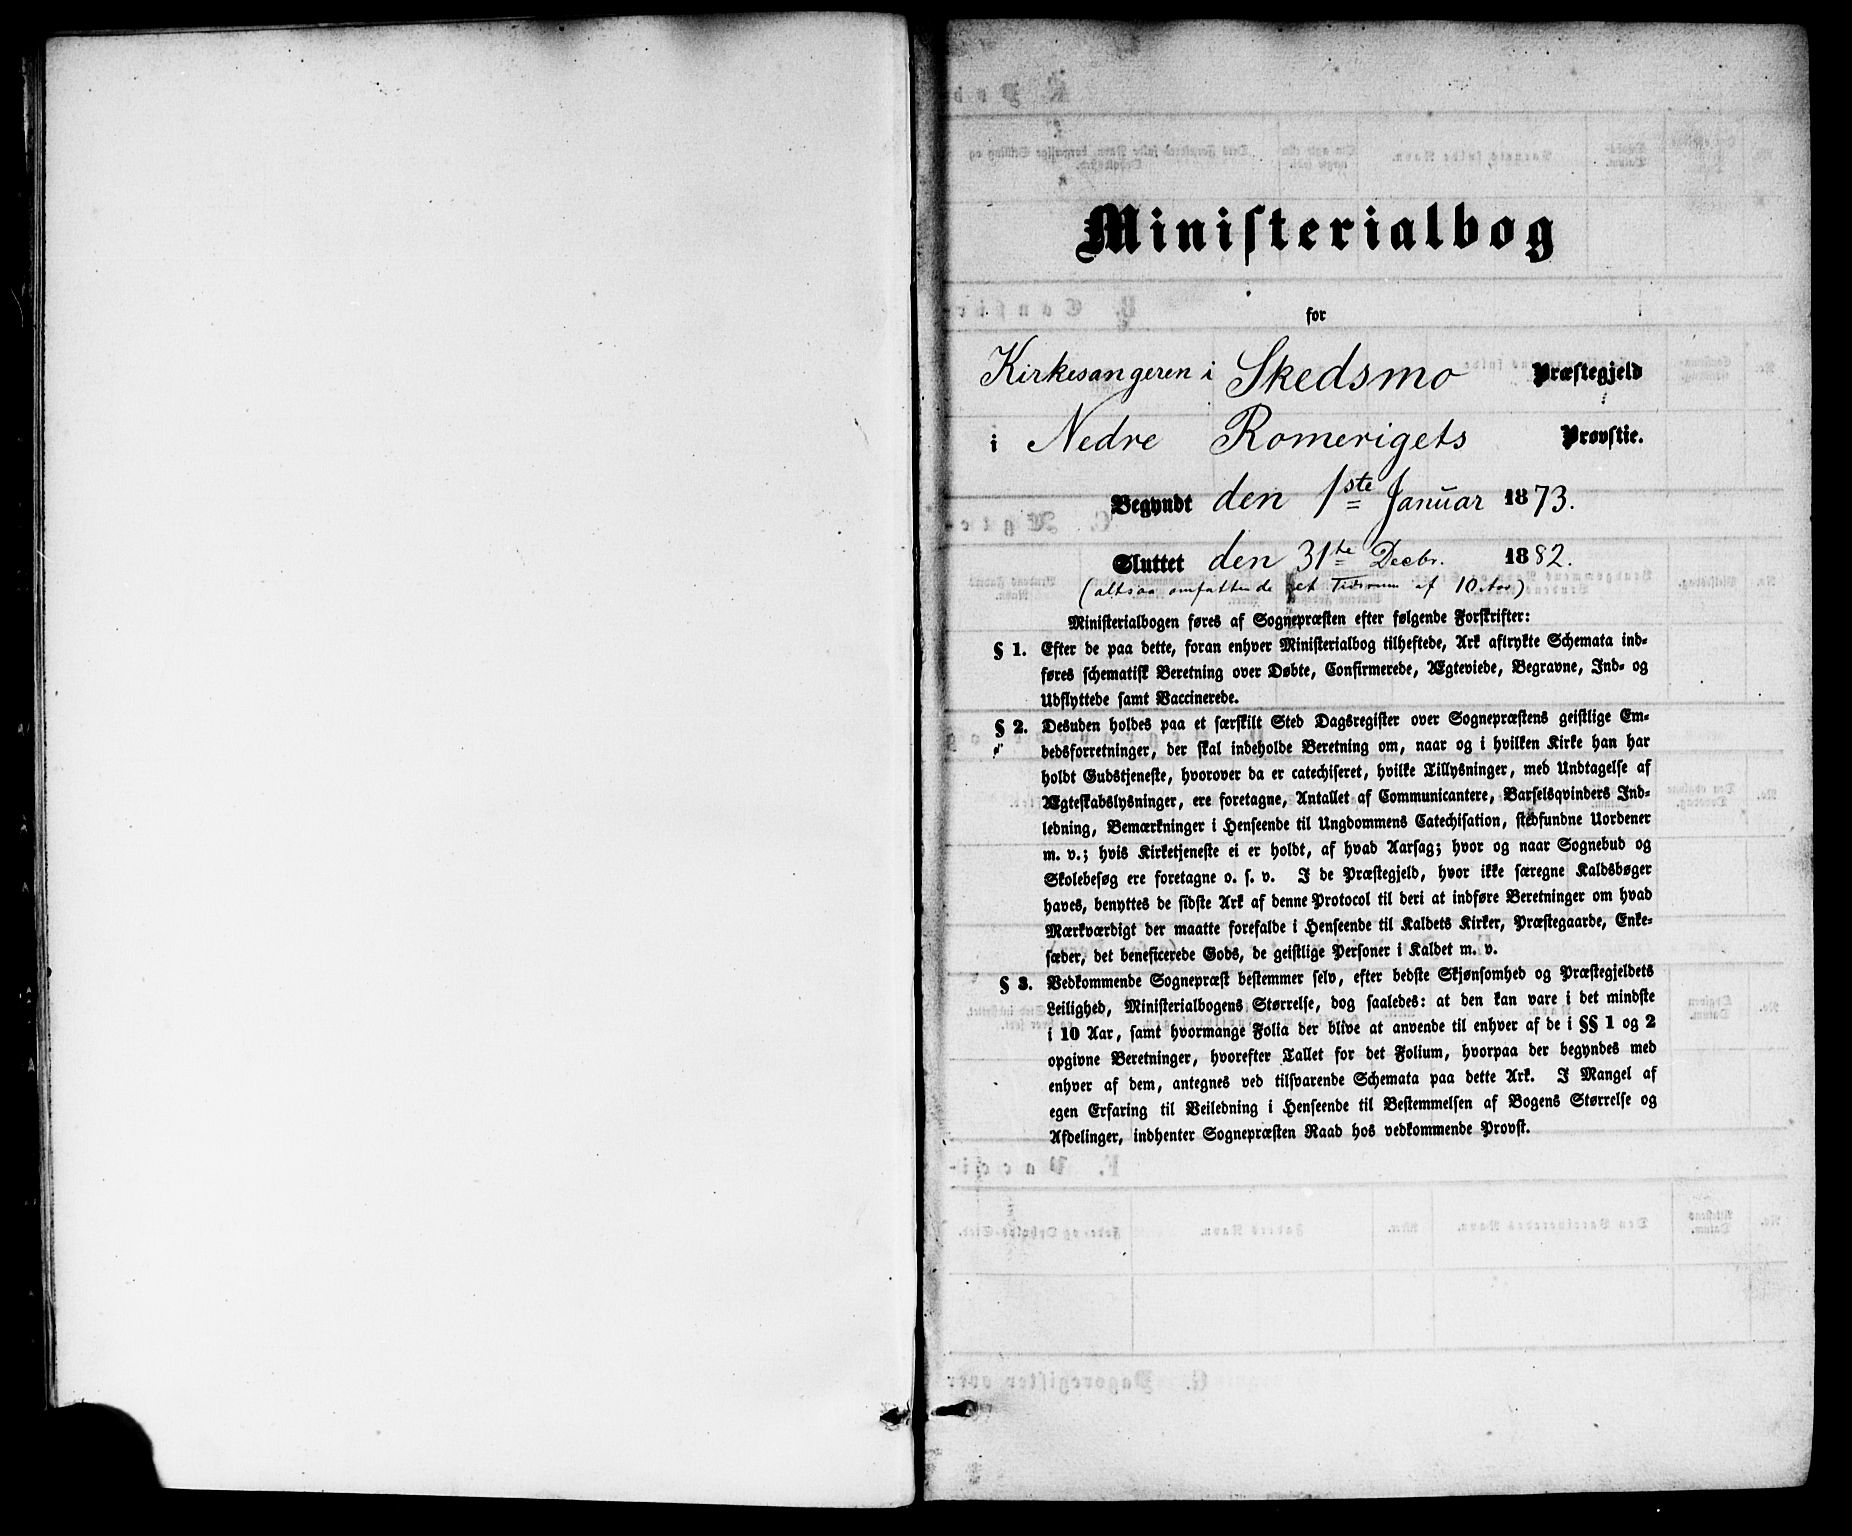 Ministerialbog
for
Kirkesangeren i Skedsmo Præstegjeld
i Nedre Romerigets Provstie.
Begyndt den 1ste Januar 1873.
Sluttet den 31te Decbr. 1882.
(altsaa omfattende et Tidsrum af 10 Aar)
Ministerialbogen føres af Sognepræsten efter følgende Forskrifter:
§ 1. Efter de paa dette, foran enhver Ministerialbog tilheftede, Ark aftrykte Schemata ind-
føres schematisk Beretning over Døbte, Confirmerede, Ægteviede, Begravne, Ind- og
Udflyttede samt Vaccinerede.
§ 2. Desuden holdes paa et særskilt Sted Dagsregister over Sognepræstens geistlige Em-
bedsforretninger, der skal indeholde Beretning om, naar og i hvilken Kirke han har
holdt Gudstjeneste, hvorover da er catechiseret, hvilke Tillysninger, med Undtagelse af
Ægteskabslysninger, ere foretagne, Antallet af Communicantere, Barselsqvinders Ind-
ledning, Bemærkninger i Henseende til Ungdommens Catechisation, stedfundne Uordener
m. v.; hvis Kirketjeneste ei er holdt, af hvad Aarsag; hvor og naar Sognebud og
Skolebesøg ere foretagne o. s. v. I de Præstegjeld, hvor ikke særegne Kaldsbøger
haves, benyttes de sidste Ark af denne Protocol til deri at indføre Beretninger om hvad
Mærkværdigt der maatte forefalde i Henseende til Kaldets Kirker, Præstegaarde, Enke-
sæder, det beneficerede Gods, de geistlige Personer i Kaldet m. v.
§ 3. Vedkommende Sognepræst bestemmer selv, efter bedste Skjønsomhed og Præstegjeldets
Leilighed, Ministerialbogens Størrelse, dog saaledes: at den kan vare i det mindste
i 10 Aar, samt hvormange Folia der blive at anvende til enhver af de i §§ 1 og 2
opgivne Beretninger, hvorefter Tallet for det Folium, hvorpaa der begyndes med
enhver af dem, antegnes ved tilsvarende Schemata paa dette Ark. I Mangel af
egen Erfaring til Veiledning i Henseende til Bestemmelsen af Bogens Størrelse og
Afdelinger, indhenter Sognepræsten Raad hos vedkommende Provst.